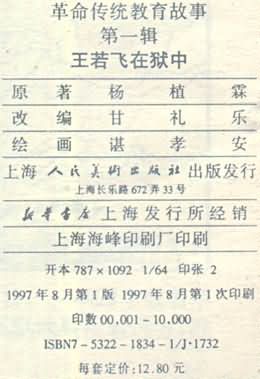 革命传统教育故事
第一辑
王若飞在狱中
原著 杨植霖
改编 甘礼乐
绘画 谌孝安
上海人民美術出版社出版发行
上海长乐路672弄33号
新华書店上海发行所经销
上海海峰印刷厂印刷
开本787×1092 1/64 印张2
1997年8月第1版 1997年8月第1次印刷
印数00,001-10,000
ISBN7-5322-1834-1/J·1732
每套定价:12.80元